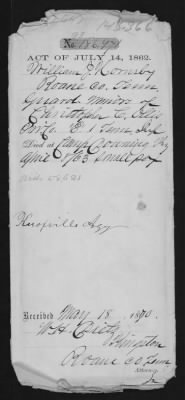 148366
No. 186.971
ACT OF JULY 14, 1862.
William J. Hornsby
Roane co. Tenn
Guard minors of
Christopher C.
Private E 1 Tenn Inf
Died at Camp Kg
April 1863 Small pox
Knoxville Agy
Received May 18, 1870.
W.H.
Kingston
Roane co, Tenn
Attorney